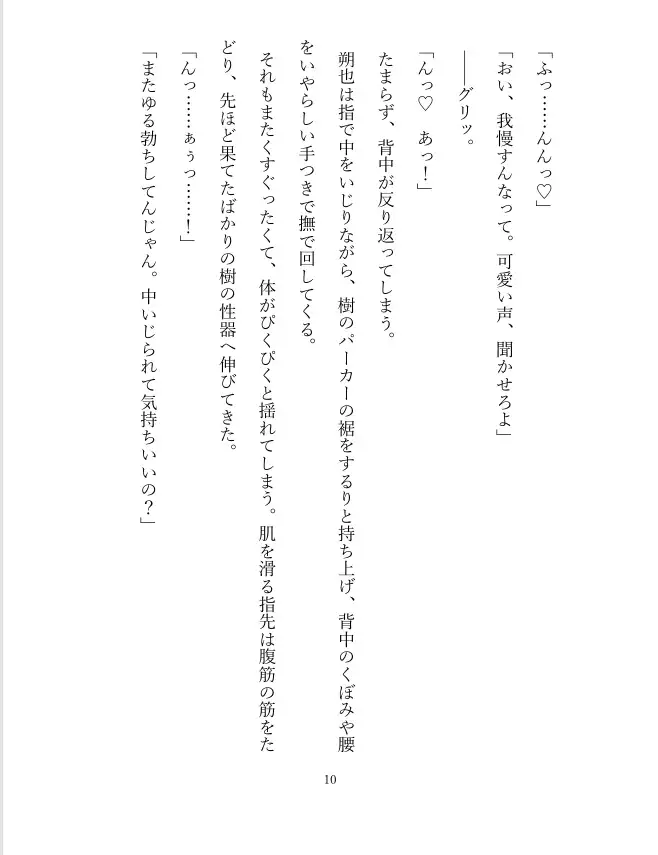 「ふっ……んんっ♡」
「おい、我慢すんなって。可愛い声、聞かせろよ」
――グリッ。
「んっ♡　あっ！」
たまらず、背中が反り返ってしまう。
朔也は指で中をいじりながら、樹のパーカーの裾をするりと持ち上げ、背中のくぼみや腰
をいやらしい手つきで撫で回してくる。
それもまたくすぐったくて、体がぴくぴくと揺れてしまう。肌を滑る指先は腹筋の筋をた
どり、先ほど果てたばかりの樹の性器へ伸びてきた。
「んっ……ぁぅっ……！」
「またゆる勃ちしてんじゃん。中いじられて気持ちいいの？」
10